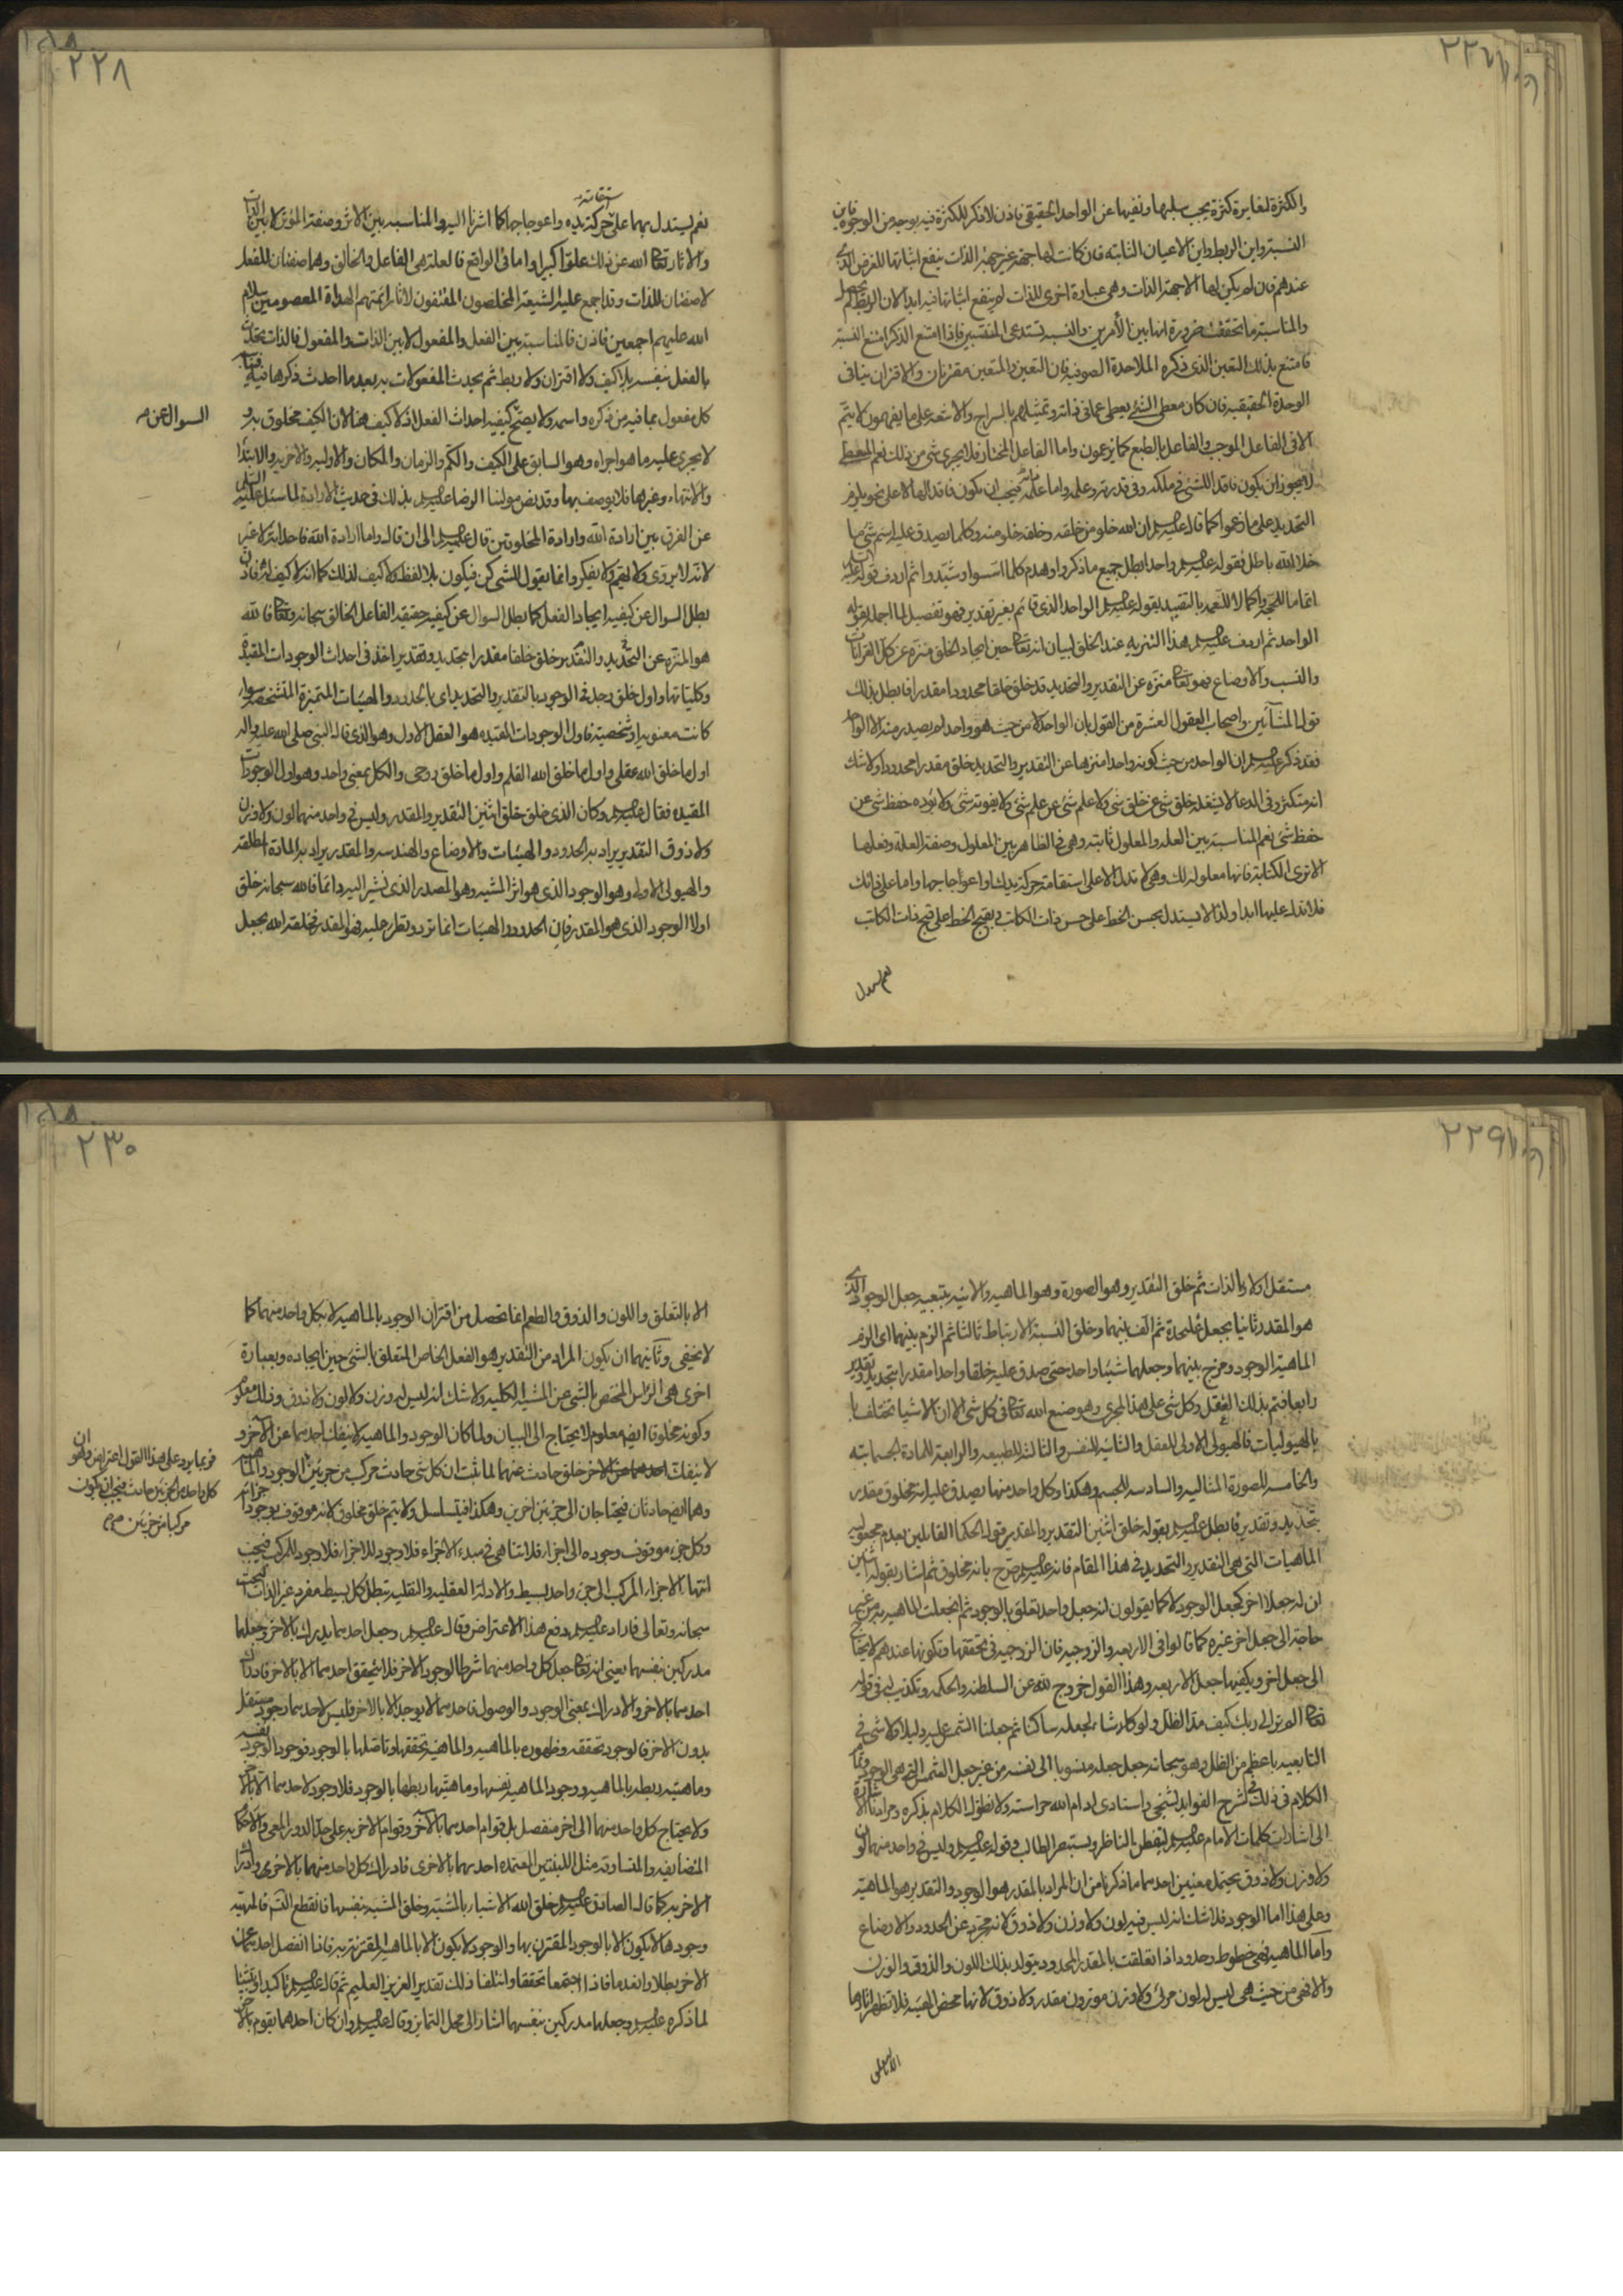 ٢٢٧
والكثرة لمغايرة كثرة يجب سلبها ونفيها عن الواحد الحقيقي فاذن لا ذكر للكثرة فيه بوجه من الوجوه فاين
النسبة واين الربط واين الاعيان الثابته فان كانت لها جهة غير جهة الذات ينفع اثباتها للغرض الذى
عندهم فان لم يكن لها الا جهة الذات وهى عبارة اخرى للذات لم ينفع اثباتها فيه ابدا لان الربط لم يحصل
والمناسبة ما تحققت ضرورة انها بين الأمرين والنسبه تستدعى المنتسبين فاذا امتنع الذكر امتنع النسبة
فامتنع بذلك التعين الذى ذكره الملاحدة الصوفيه فان التعين والمتعين مقترنان والاقتران ينافى
الوحدة الحقيقيه فان كان معطى الشئ يعطى عما فى ذاته وتمثيلهم بالسراج والاشعه على ما يفهمون لا يتم
الا فى الفاعل الموجب والفاعل بالطبع كما يزعمون واما الفاعل المختار فلا يجرى شئ من ذلك نعم المعطى
لا يجوز ان يكون فاقدا للشئ فى ملكه وفى قدرته وعلمه واما فى ذاته فيجب ان يكون فاقدا لها لا على نحو يلزم
التحديد على ما زعموا كما قال عليه السلم ان الله خلو من خلقه وخلقه خلو منه وكلما يصدق عليه اسم شئ ما
خلا الله باطل فقوله عليه السلم واحد ابطل جميع ما ذكروا وهدم كلما اسسوا وشيدوا ثم اردف قوله عليه
اتماما للحجة واكمالا للنعمه بالتقييد بقوله عليه السلم الواحد الذى قائم بغير تقدير فهو تفصيل لما اجمله بقوله
الواحد ثم اردف عليه السلم هذا التنزيه عند الخلق لبيان انه تعالى حين ايجاد الخلق منزه عن كل القرانات
والنسب والاوضاع فهو تعالى منزه عن التقدير والتحديد قد خلق خلقا محدودا مقدرا فابطل بذلك
قول المشائين واصحاب العقول العشرة من القول بان الواحد من حيث هو واحد لم يصدر منه الا الواحد
فقد ذكر عليه السلم ان الواحد من حيث كونه واحدا منزها عن التقدير والتحديد خلق مقدرا محدودا ولا شك
انه متكثر وفى الدعا لا يشغله خلق شئ عن خلق شئ ولا علم شئ عن علم شئ ولا يفوته شئ ولا يؤده حفظ شئ عن
حفظ شئ نعم المناسبة بين العله والمعلول ثابته وهى فى الظاهر بين المعلول وصفة العله وفعلها
الا ترى الكتابة فانها معلوله لك وهى لا تدل الا على استقامة حركة يدك او اعوجاجها واما على ذاتك
فلا تدل عليها ابدا ولذا لا يستدل بحسن الخط على حسن ذات الكاتب وبقبح الخط على قبح ذات الكاتب
نعم يستدل
٢٢٨
نعم يستدل بهما على استقامة حركة يده واعوجاجها كما اشرنا اليه والمناسبه بين الاثر وصفة المؤثر لا بين الذات
والاثار تعالى الله عن ذلك علوا كبيرا واما فى الواقع فالعلة هى الفاعل والخالق وهما صفتان للفعل
لا صفتان للذات وقد اجمع عليه الشيعة المخلصون المقتفون لاثار ائمتهم الهداة المعصومين سلام
الله عليهم اجمعين فاذن فالمناسبة بين الفعل والمفعول لا بين الذات والمفعول فالذات
بالفعل بنفسه بلا كيف ولا اقتران ولا ربط ثم يحدث المفعولات به بعد ما احدث ذكرها فيه
كل مفعول بما فيه من ذكره واسمه ولا يصح كيفية احداث الفعل اذ لا كيف هنا لان الكيف مخلوق به و
السوال عن
لا يجرى عليه ما هو اجراه وهو السابق على الكيف والكم والزمان والمكان والاوليه والاخريه والابتدا
والانتهاء وغيرها فلا يوصف بها وقد نص مولينا الرضا عليه السلم بذلك فى حديث الارادة لما سئل عليه السلم
عن الفرق بين ارادة الله وارادة المخلوقين قال عليه السلم الى ان قال واما ارادة الله فاحداثه لا غير
لانه لا يروى ولا يهم ولا يفكر وانما يقول للشئ كن فيكون بلا لفظ ولا كيف لذلك كما انه لا كيف له فاذن
بطل السوال عن كيفيه ايجاد الفعل كما بطل السوال عن كيفيه حقيقه الفاعل الخالق سبحانه وتعالى فالله
هو المنزه عن التحديد والتقدير خلق خلقا مقدرا بتحديد وتقدير اخذ فى احداث الوجودات المقيدة
وكلياتها واول خلق وجد فى الوجود بالتقدير والتحديد اى بالحدود والهيئات المتميزة المتشخصه سواء
كانت معنويه او شخصية فاول الوجودات المقيده هو العقل الاول وهو الذى قال النبى صلى الله عليه واله
اول ما خلق الله عقلى واول ما خلق الله القلم واول ما خلق روحى والكل بمعنى واحد وهو اول الوجودات
المقيده فقال عليه السلم وكان الذى خلق خلق اثنين التقدير والمقدر وليس فى واحد منهما لون ولا وزن
ولا ذوق التقدير يراد به الحدود والهيئات والاوضاع والهندسه والمقدر يراد به المادة المطلقه
والهيولى الاولى وهو الوجود الذى هو اثر المشيه وهو المصدر الذى نشير اليه دائما فالله سبحانه خلق
اولا الوجود الذى هو المقدر فان الحدود والهيئات انما ترد وتطرء عليه فهو المقدر فخلقه الله بجعل
٢٢٩
مستقل اولا وبالذات ثم خلق التقدير وهو الصورة وهو الماهيه والانيه بتبعيه جعل الوجود الذى
هو المقدر ثانيا بجعل عليحدة ثم الف بينهما وخلق النسبة الارتباط ثالثا ثم الزم بينهما اى الزم
الماهية الوجود ومزج بينهما وجعلهما شيئا واحد حتى صدق عليه خلقا واحدا مقدرا بتحديد وتقدير
رابعا فتم بذلك العقل وكل شئ على هذا المجرى وهو صنع الله تعالى فى كل شئ الا ان الاشيا تختلف
بالهيوليات فالهيولى الاولى للعقل والثانيه للنفس والثالثة للطبيعه والرابعه للمادة الجسمانيه
والخامسه للصورة المثاليه والسادسه للجسم وهكذا وكل واحد منها يصدق عليه انه مخلوق مقدر
بتحديد وتقدير فابطل عليه السلم بقوله خلق اثنين التقدير والمقدر قول الحكما القائلين بعدم مجعوليه
الماهيات التى هى التقدير والتحديد فى هذا المقام فانه عليه السلم صرح بانه مخلوق ثم اشار بقوله اثنين
ان له جعلا اخر كجعل الوجود لا كما يقولون انه جعل واحد تعلق بالوجود ثم انجعلت الماهيه به من غير
حاجة الى جعل اخر غيره كما قالوا فى الاربعه والزوجيه فان الزوجيه فى تحققها وتكونها عندهم لا يحتاج
الى جعل اخر ويكفيها جعل الاربعه وهذا القول خروج لله عن السلطنه والحكمه وتكذيب له فى قوله
تعالى الم تر الى ربك كيف مد الظل ولو شاء لجعله ساكنا ثم جعلنا الشمس عليه دليلا ولا شئ فى
التابعيه باعظم من الظل وهو سبحانه جعل جعله منسوبا الى نفسه من غير جعل الشمس التى هى الوجود وتمام
الكلام فى ذلك فى شرح الفوايد لشيخى واستادى ادام الله حراسته ولا نطول الكلام بذكره ومرادنا الاشارة
الى اشارات كلمات الامام عليه السلم ليتفطن الناظر ويستبصر الطالب وقوله عليه السلم وليس فى واحد منهما لون
ولا وزن ولا ذوق يحتمل معنيين احدهما ما ذكرنا من ان المراد بالمقدر هو الوجود والتقدير هو الماهية
وعلى هذا اما الوجود فلا شك انه ليس فيه لون ولا وزن ولا ذوق لانه مجرد عن الحدود والاوضاع
واما الماهيه فهى خطوط وحدود اذا تعلقت بالمقدر المحدود يتولد بذلك اللون والذوق والوزن
والا فهى من حيث هى ليس له لون مرئى ولا وزن موزون مقدر ولا ذوق لانها محض الهيئه فلا تظهر اثارها
الا بالتعلق
٢٣٠
الا بالتعلق واللون والذوق والطعم انما تحصل من اقتران الوجود بالماهيه لا بكل واحد منهما كما
لا يخفى وثانيهما ان يكون المراد من التقدير هو الفعل الخاص المتعلق بالشئ حين ايجاده وبعبارة
اخرى هى الراس المختص بالشئ عن المشيه الكليه ولا شك انه ليس له وزن ولا لون ولا ذوق وذلك معلوم
وكونه مخلوقا ايضا معلوم لا يحتاج الى البيان ولما كان الوجود والماهيه لا ينفك احدهما عن الاخر و
لا ينفك احدهما عن الاخر خلق حادث عنهما لما ثبت ان كل شئ حادث مركب من جزئين الوجود والماهيه
وهما ايضا حادثان فيحتاجان الى جزئين اخرين وهكذا فيتسلسل ولا يتم خلق مخلوق لانه موقوف بوجود اجزائه
وكل جزء موقوف وجوده الى اجزاء فلا تناهى فى مبدء الاجزاء فلا وجود للاجزاء فلا وجود للمركب فيجب
انتهاء الاجزاء المركب الى جزء واحد بسيط والادلة العقليه والنقليه تبطل كل بسيط مفرد غير الذات البحت
سبحانه وتعالى فاراد عليه السلم دفع هذا الاعتراض وقال عليه السلم وجعل احدهما يدرك بالاخر وجعلهما
مدركين بنفسهما يعنى انه تعالى جعل كل واحد منهما شرطا لوجود الاخر فلا يتحقق احدهما الا بالاخر فادراك
احدهما بالاخر والادراك بمعنى الوجود والوصول فاحدهما لا يوجد الا بالاخر فليس لاحدهما وجود مستقل
بدون الاخر فالوجود تحققه وظهوره بالماهيه والماهيه تحققها وتاصلها بالوجود فوجود الوجود بنفسه
وماهيته ربطه بالماهيه ووجود الماهيه نفسها وماهيتها ربطها بالوجود فلا وجود لاحدهما الا بالاخر
ولا يحتاج كل واحد منهما الى اخر منفصل بل قوام احدهما بالاخر وقوام الاخر به على حد الدور المعى والاحكام
المتضايفه والمتساوقه مثل اللبنتين المعتمده احديهما بالاخرى فادراك كل واحد منهما بالاخرى وادراك
الاخر به كما قال الصادق عليه السلم خلق الله الاشياء بالمشيه وخلق المشيه بنفسها فانقطع التسلسل فالمهيه
وجودها لا يكون الا بالوجود المقترن بها والوجود لا يكون الا بالماهيه المقترنة به فاذا انفصل احدهما عن
الاخر بطلا وانعدما فاذا اجتمعا تحققا وائتلفا ذلك تقدير العزيز العليم ثم قال عليه السلم تاكيدا وتثبيتا
لما ذكره عليه السلم وجعلهما مدركين بنفسهما اشار الى محل التمايز وقال عليه السلم وان كان احدهما يقوم بالاخر
فربما يرد على هذا القول اعتراض وهو ان
كل واحد من الجزئين حادث فيجب ان يكون
مركبا من جزئين